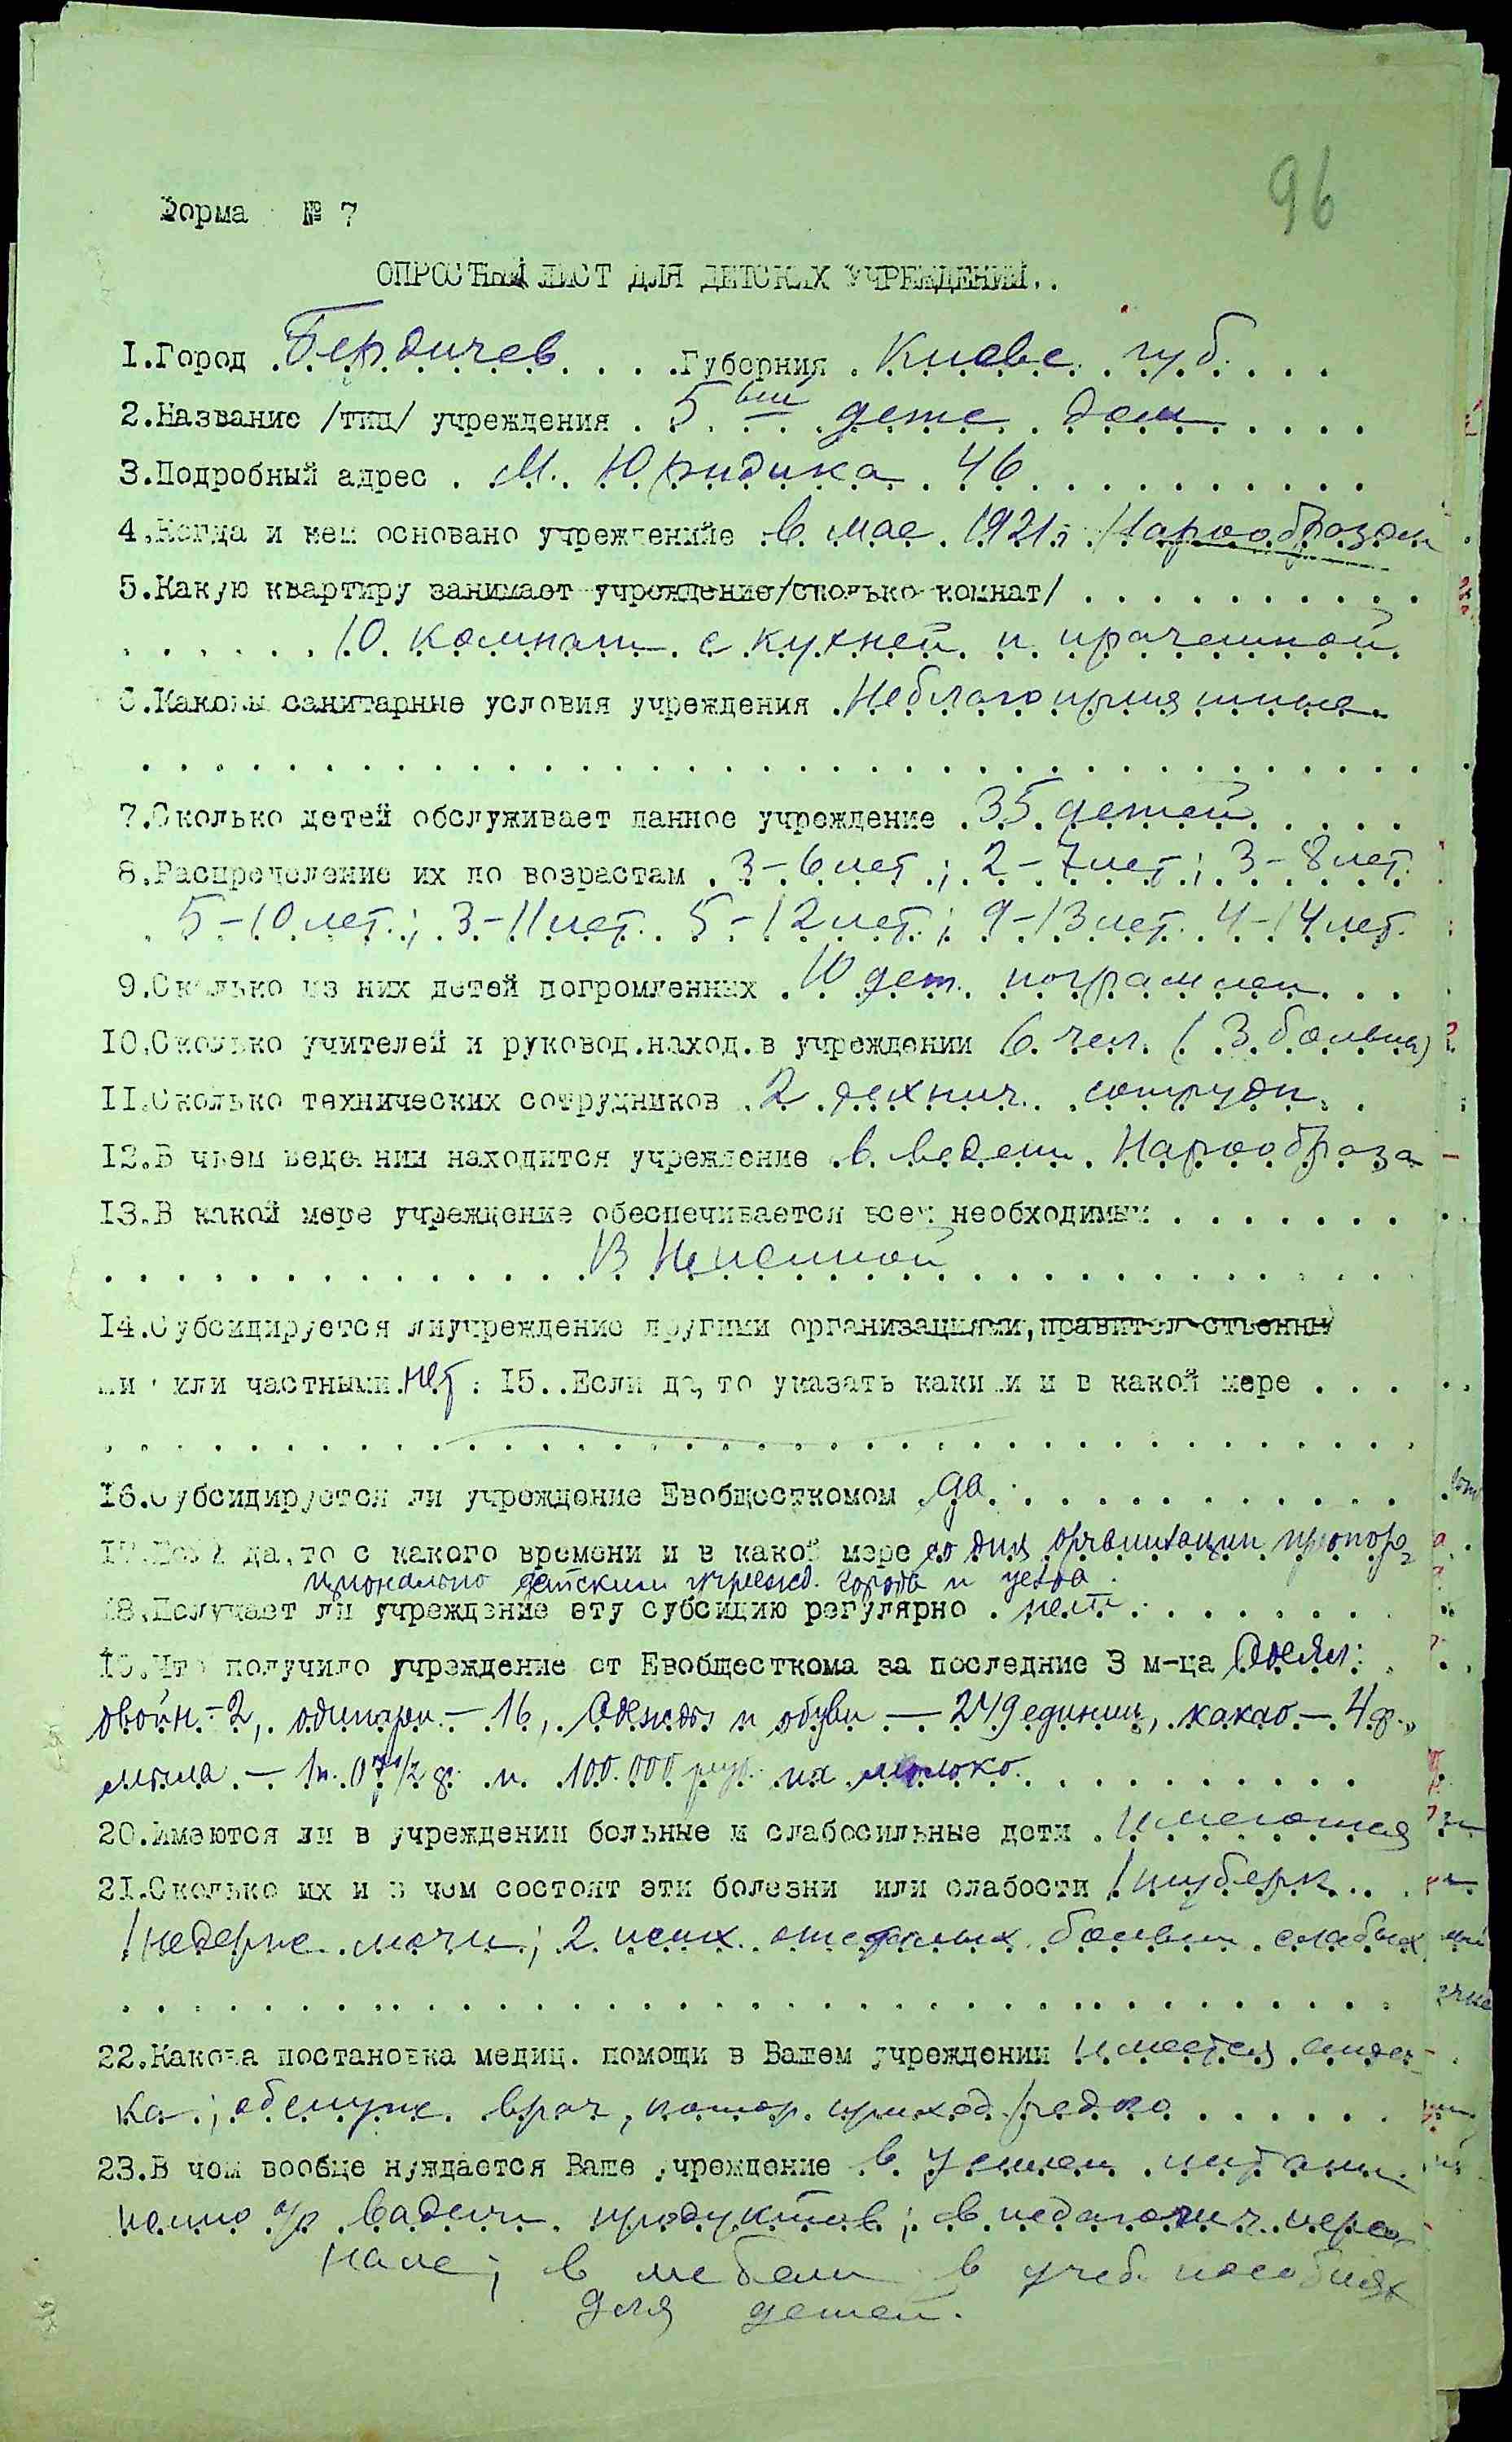 96
Форма № 7
ОПРОСНЫЙ ЛИСТ ДЛЯ ДЕТСКИХ УЧРЕЖДЕНИЙ..
1.Город Бердичев Губерния Киевс. губ.
2.Название /тип/ учреждения 5ый детс. дом
3.Подробный адрес . М. Юридика 46
4.Когда и кем основано учреждениие в мае 1921 г. Наробразом
5.Какую квартиру занимает учреждение/сколько комнат/
10 комнат с кухней и прачешной
6.Каковы санитарные условия учреждения Неблагоприятные.
7.Сколько детей обслуживает данное учреждение 35 детей
8.Распределение их по возрастам 3-6 лет; 2-7 лет; 3-8 лет.
5-10 лет.; 3-11 лет. 5-12 лет.; 9-13 лет. 4-14 лет.
9.Сколько из них детей погромленных 10 дет.
10.Сколько учителей и руковод.наход.в учреждении 6 чел. (3 больны)
11.Сколько технических сотрудников 2 технич. сотрудн.
12.В чьем ведении находится учреждение в веден. Наробраза
13.В какой мере учреждение обеспечивается всем необходимым
В
14.Субсидируется лиучреждение другими организациями,правительственны
ми или частными нет 15..Если да, то указать какими и в какой мере
16.Субсидируется ли учреждение Евобщесткомом да
17.Если да,то с какого времени и в какой мере со дня организации пропор-
ционально детским учрежд. города и уезда.
18.Получает ли учреждение эту субсидию регулярно . нет
19.Что получило учреждение от Евобщесткома за последние 3 м-ца Одеял:
двойн.-2, одинарн.- 16, Одежды и обуви - 249 единиц, какао - 4ф.,
мыла - 1п. 07 1/2 ф. и 100.000 руб. на молоко.
20.Имеются ли в учреждении больные и слабосильные дети . Имеются
21.Сколько их и в чем состоят эти болезни или слабости 1 туберк.
1 недерж. мочи; 2 псих. слабых
22.Какова постановка медиц. помощи в Вашем учреждении Имеется аптеч-
ка; обслуж. врач, котор. приход. редко
23.В чем вообще нуждается Ваше учреждение в
продуктов; в педагогич. персо-
нале; в мебели в учеб. пособиях
для детей.